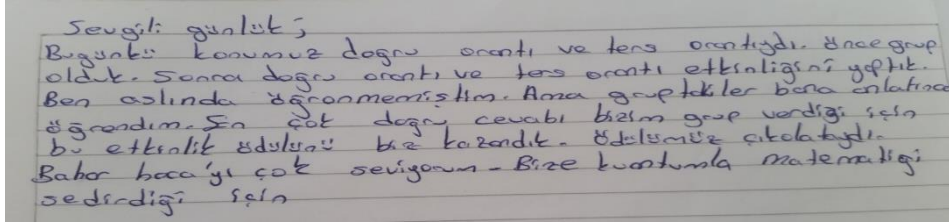 Sevgili günlük;
Bugünkü konumuz doğru orantı ve ters orantıydı. Önce grup
olduk. Sonra doğru orantı ve ters orantı etkinliğini yaptık.
Ben aslında öğrenmemiştim. Ama gruptakiler bana anlatınca
öğrendim. En çok doğru cevabı bizim grup verdiği için
bu etkinlik ödülünü biz kazandık. Ödülümüz çikolataydı.
Bahar hoca'yı çok seviyorum - Bize kuantumla matematiği
sedirdiği için